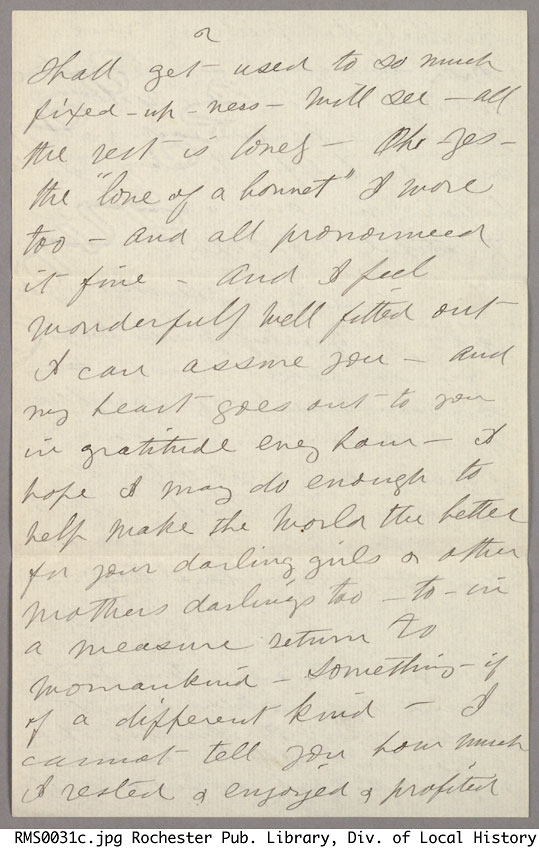 2
shall get used to so much
fixed-up-ness - will see - all
the rest is lovely - Oh - yes -
the "love of a bonnet" I wore
too - and all pronounced
it fine - And I feel
wonderfully well fitted out
I can assure you - and
my heart goes out to you
in gratitude every hour - I
hope I may do enough to
help make the world the better
for your darling girls & other
mothers darlings too - to - in
a measure return to
womankind - something - if
of a different kind - I
cannot tell you how much
I rested & enjoyed & profited
RMS0031c.jpg Rochester Pub. Library, Div. of Local History